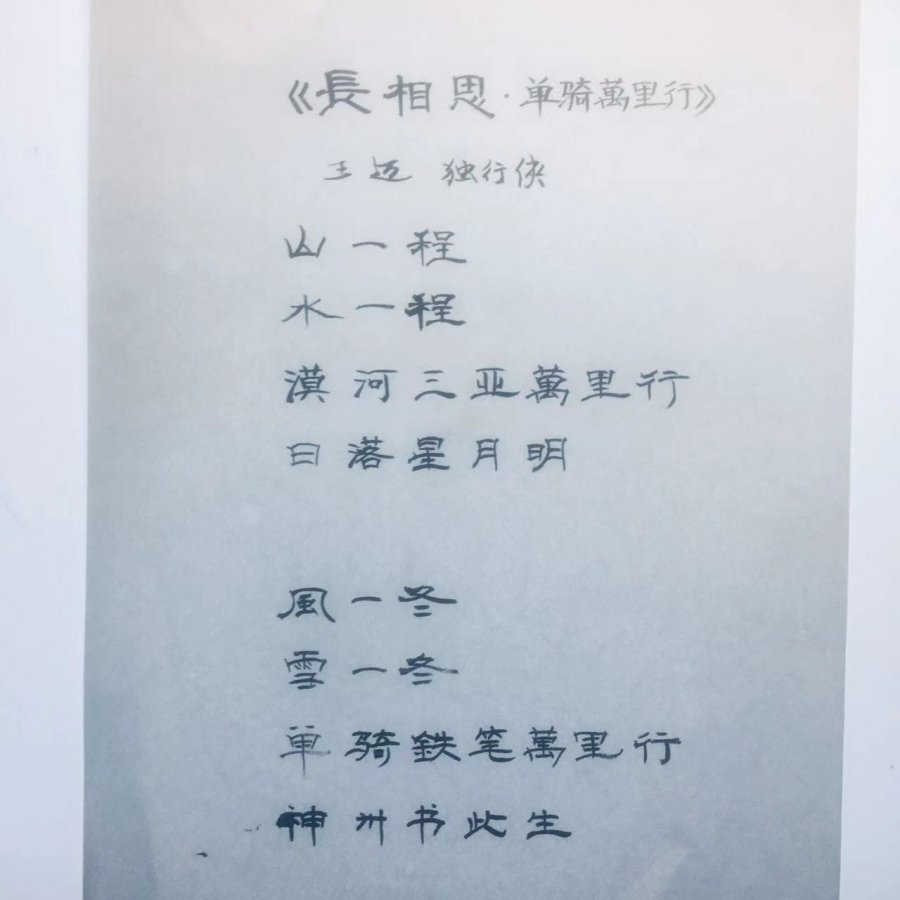 《長相思·单骑萬里行》
王迈 独行侠
山一程
水一程
漠河三亚萬里行
日落星月明
風一冬
雪一冬
单骑鉄笔萬里行
神州书此生